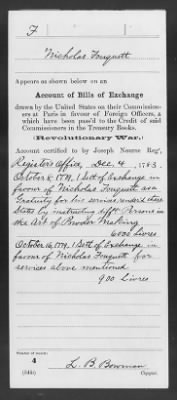 F
Nicholas Fouquett
Appears as shown below on an
Account of Bills of Exchange
drawn by the United States on their Commission-
ers at Paris in favour of Foreign Officers, &
which have been pass'd to the Credit of said
Commissioners in the Treasury Books.
(Revolutionary War.)
Account certified to by Joseph Nourse Reg.
Register's Office, Dec. 4, 1783.
October 8 1779, 1 Sett of Exchange in
favour of Nicholas Fouquett as a
Gratuity for his services rendered these
States by instructing diff't Persons in
the Art of Powder Making
6000 Livres
October 16, 1779, 1 Sett of Exchange in
favour of Nicholas Fouquett for
services above mentioned
900 Livres
Number of record:
4
(544)
L. B. Bowman
Copyist.